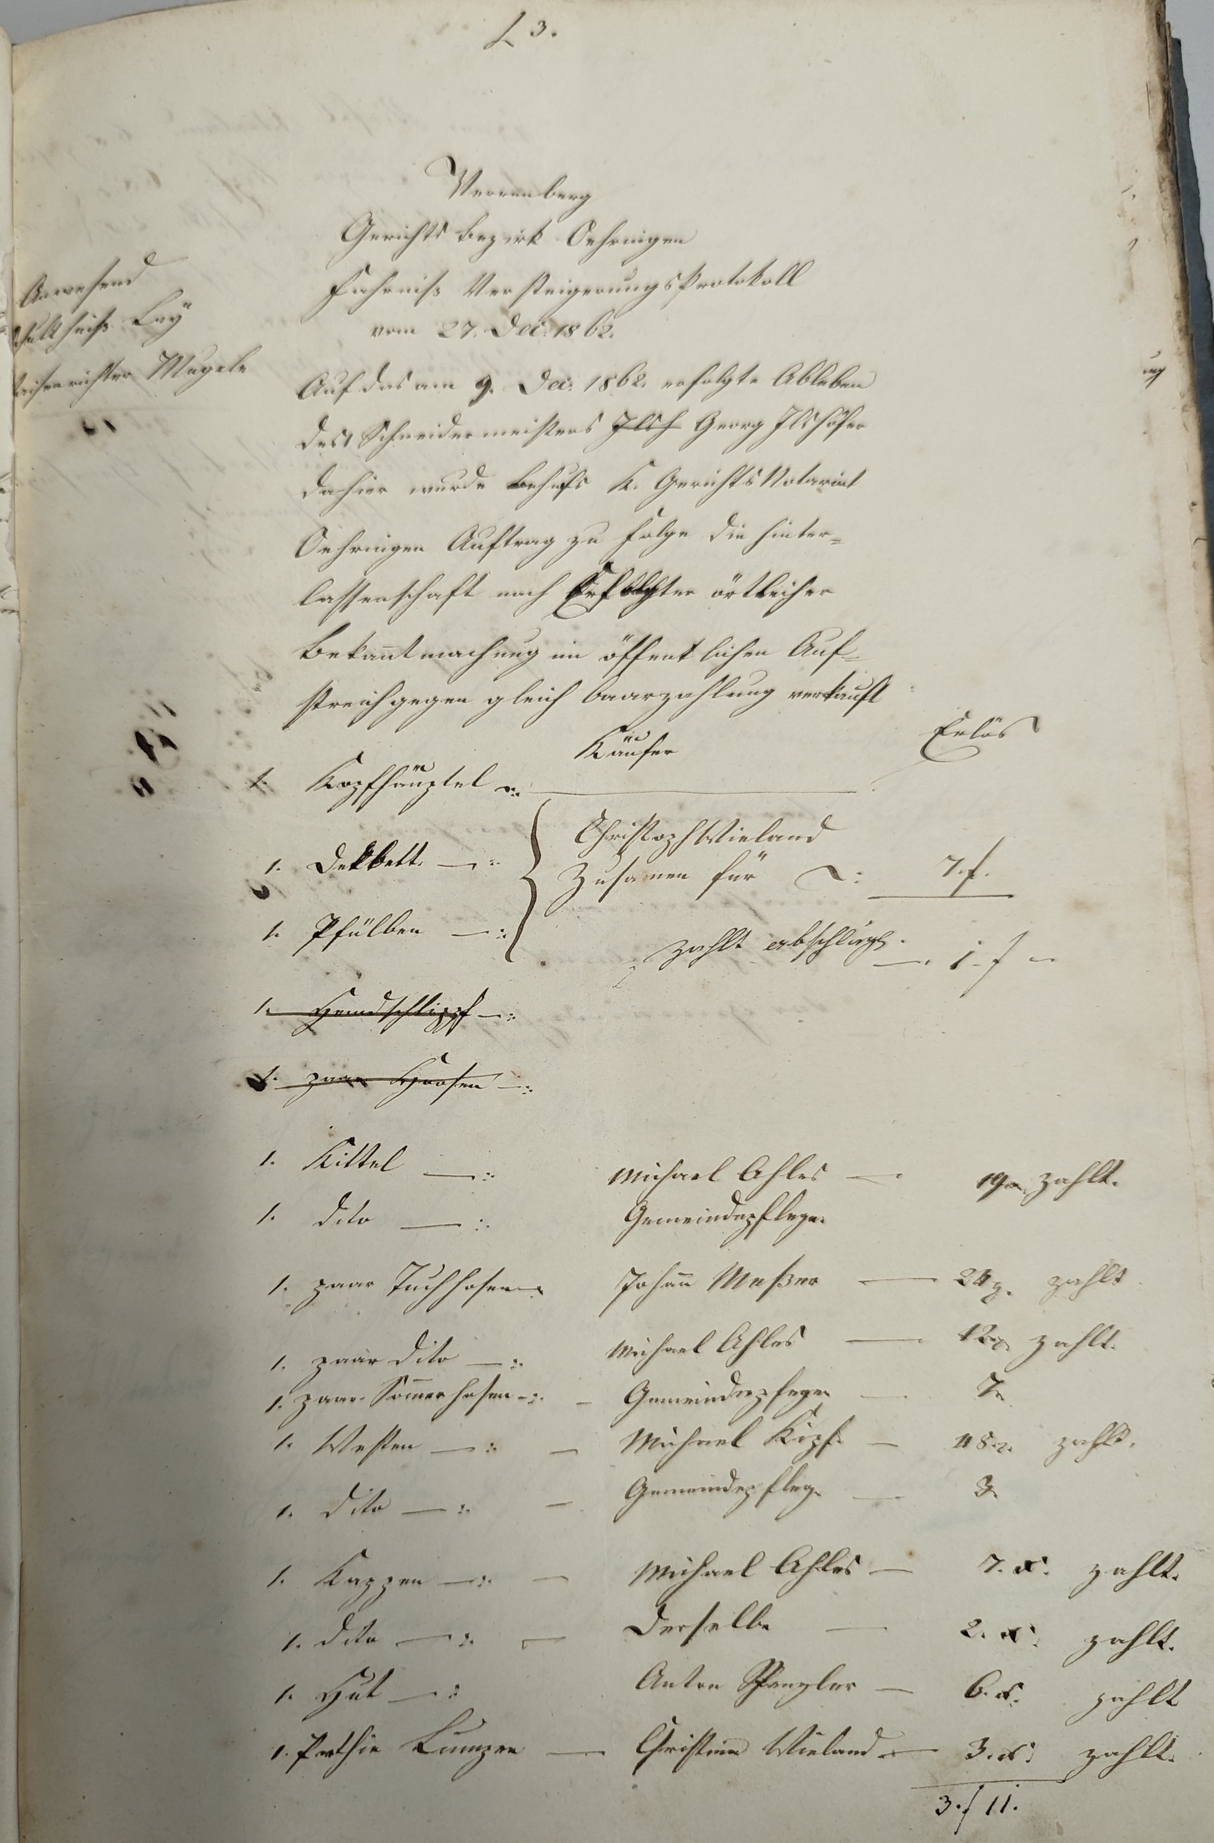 L 3.
Verrenberg
Gerichts Bezirk Oehringen
Fahrniß Versteigerungs Protokoll
vom 27. Dec. 1862.
Anwesend
Schultheiß Ley
Waisenrichter Mugele
Auf das am 9. Dec. 1862. erfolgte Ableben
des Schneidermeisters Ilsh Georg Ilshöfer
dahier wurde behufs K. Gerichts Notariat
Oehringen Auftrag zu Folge die Hinter=
lassenschaft nach Erfolgter örtlicher
Bekanntmachung im öffentlichen Auf=
streich gegen gleich baarzahlung verkauft
Käufer Erlös
1. Kopfhäuptel
1. Dekbett Christoph Wieland
Zusamen für 7. f.
1. Pfülben
zahlt abschlägl. 1. f
1. Hemdschlipf
1. paar Hosen
1. Kittel Michael Ahles 19 x zahlt.
1. dito Gemeindepflege
1. paar Tuchhosen Johann Meßner 24 x. zahlt
1. paar dito Michael Ahles 12 x zahlt.
1. paar Sommerhosen Gemeindepflege 7.
1. Westen Michael Kipf 48 x. zahlt.
1. dito Gemeindepfleg. 3.
1. Kappen Michael Ahles 7. x. zahlt.
1. dito Derselbe 2. x. zahlt.
1. Hut Anton Spengler 6. x. zahlt
1. Parthie Lumpen Christian Wieland 3. x. zahlt.
3. f 11.